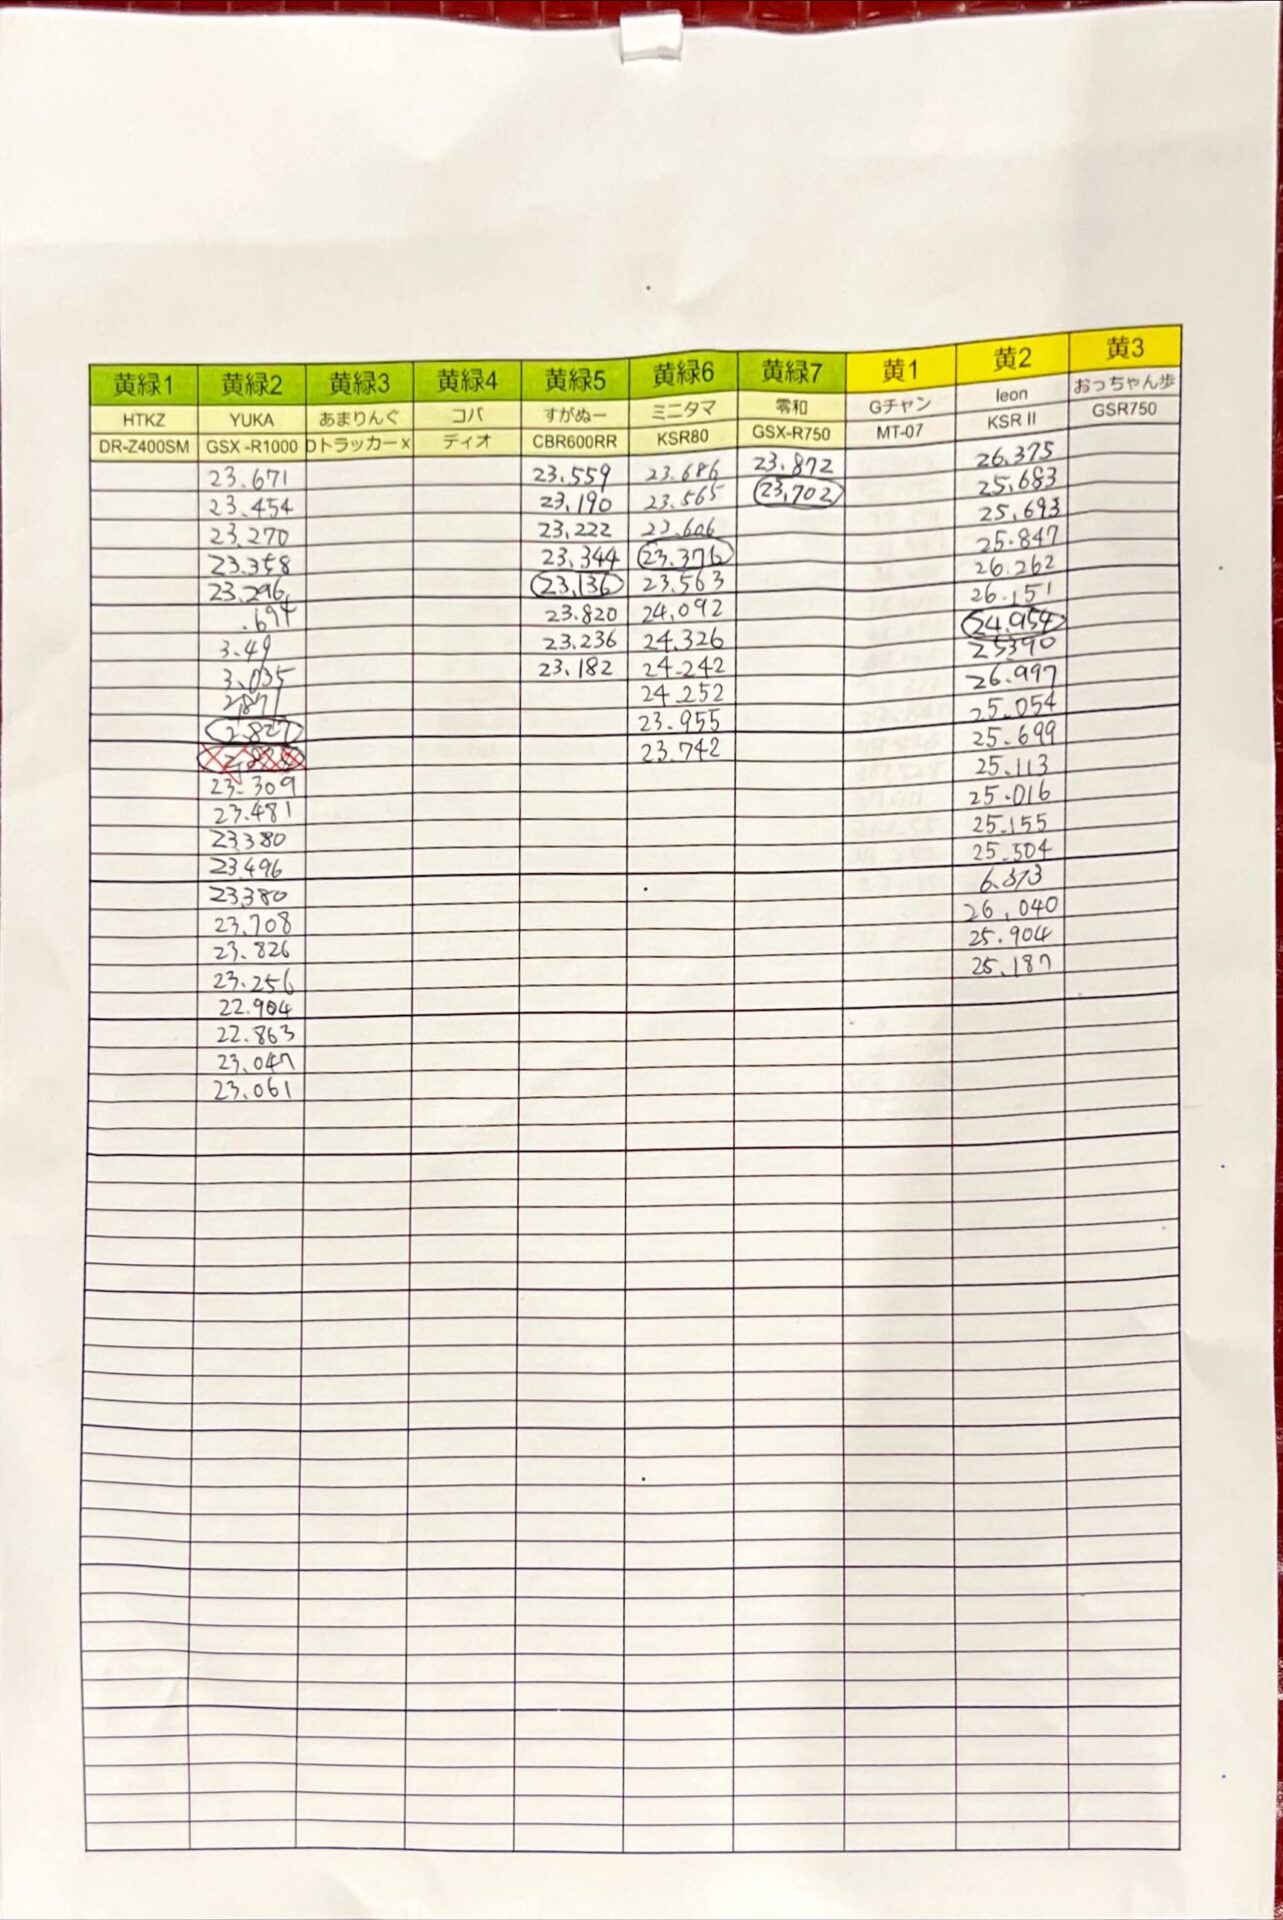 黄緑1 黄緑2 黄緑3 黄緑4 黄緑5 黄緑6 黄緑7 黄1 黄2 黄3
HTKZ YUKA あまりんぐ コバ すがぬー ミニタマ 零和 Gチャン leon おっちゃん歩
DR-Z400SM GSX-R1000 Dトラッカーx ディオ CBR600RR KSR80 GSX-R750 MT-07 KSR II GSR750
23.671 23.559 23.686 23.872 26.375
23.454 23.190 23.565 23.702 25.683
23.270 23.222 23.606 25.693
23.358 23.344 23.376 25.847
23.296 23.136 23.563 26.262
.694 23.820 24.092 26.151
3.49 23.236 24.326 24.954
3.035 23.182 24.242 25390
24.252 26.997
2.827 23.955 25.054
23.742 25.699
23.309 25.113
23.481 25.016
23380 25.155
23.496 25.504
23380 6.873
23.708 26.040
23.826 25.904
23.256 25.187
22.904
22.863
23.047
23.061